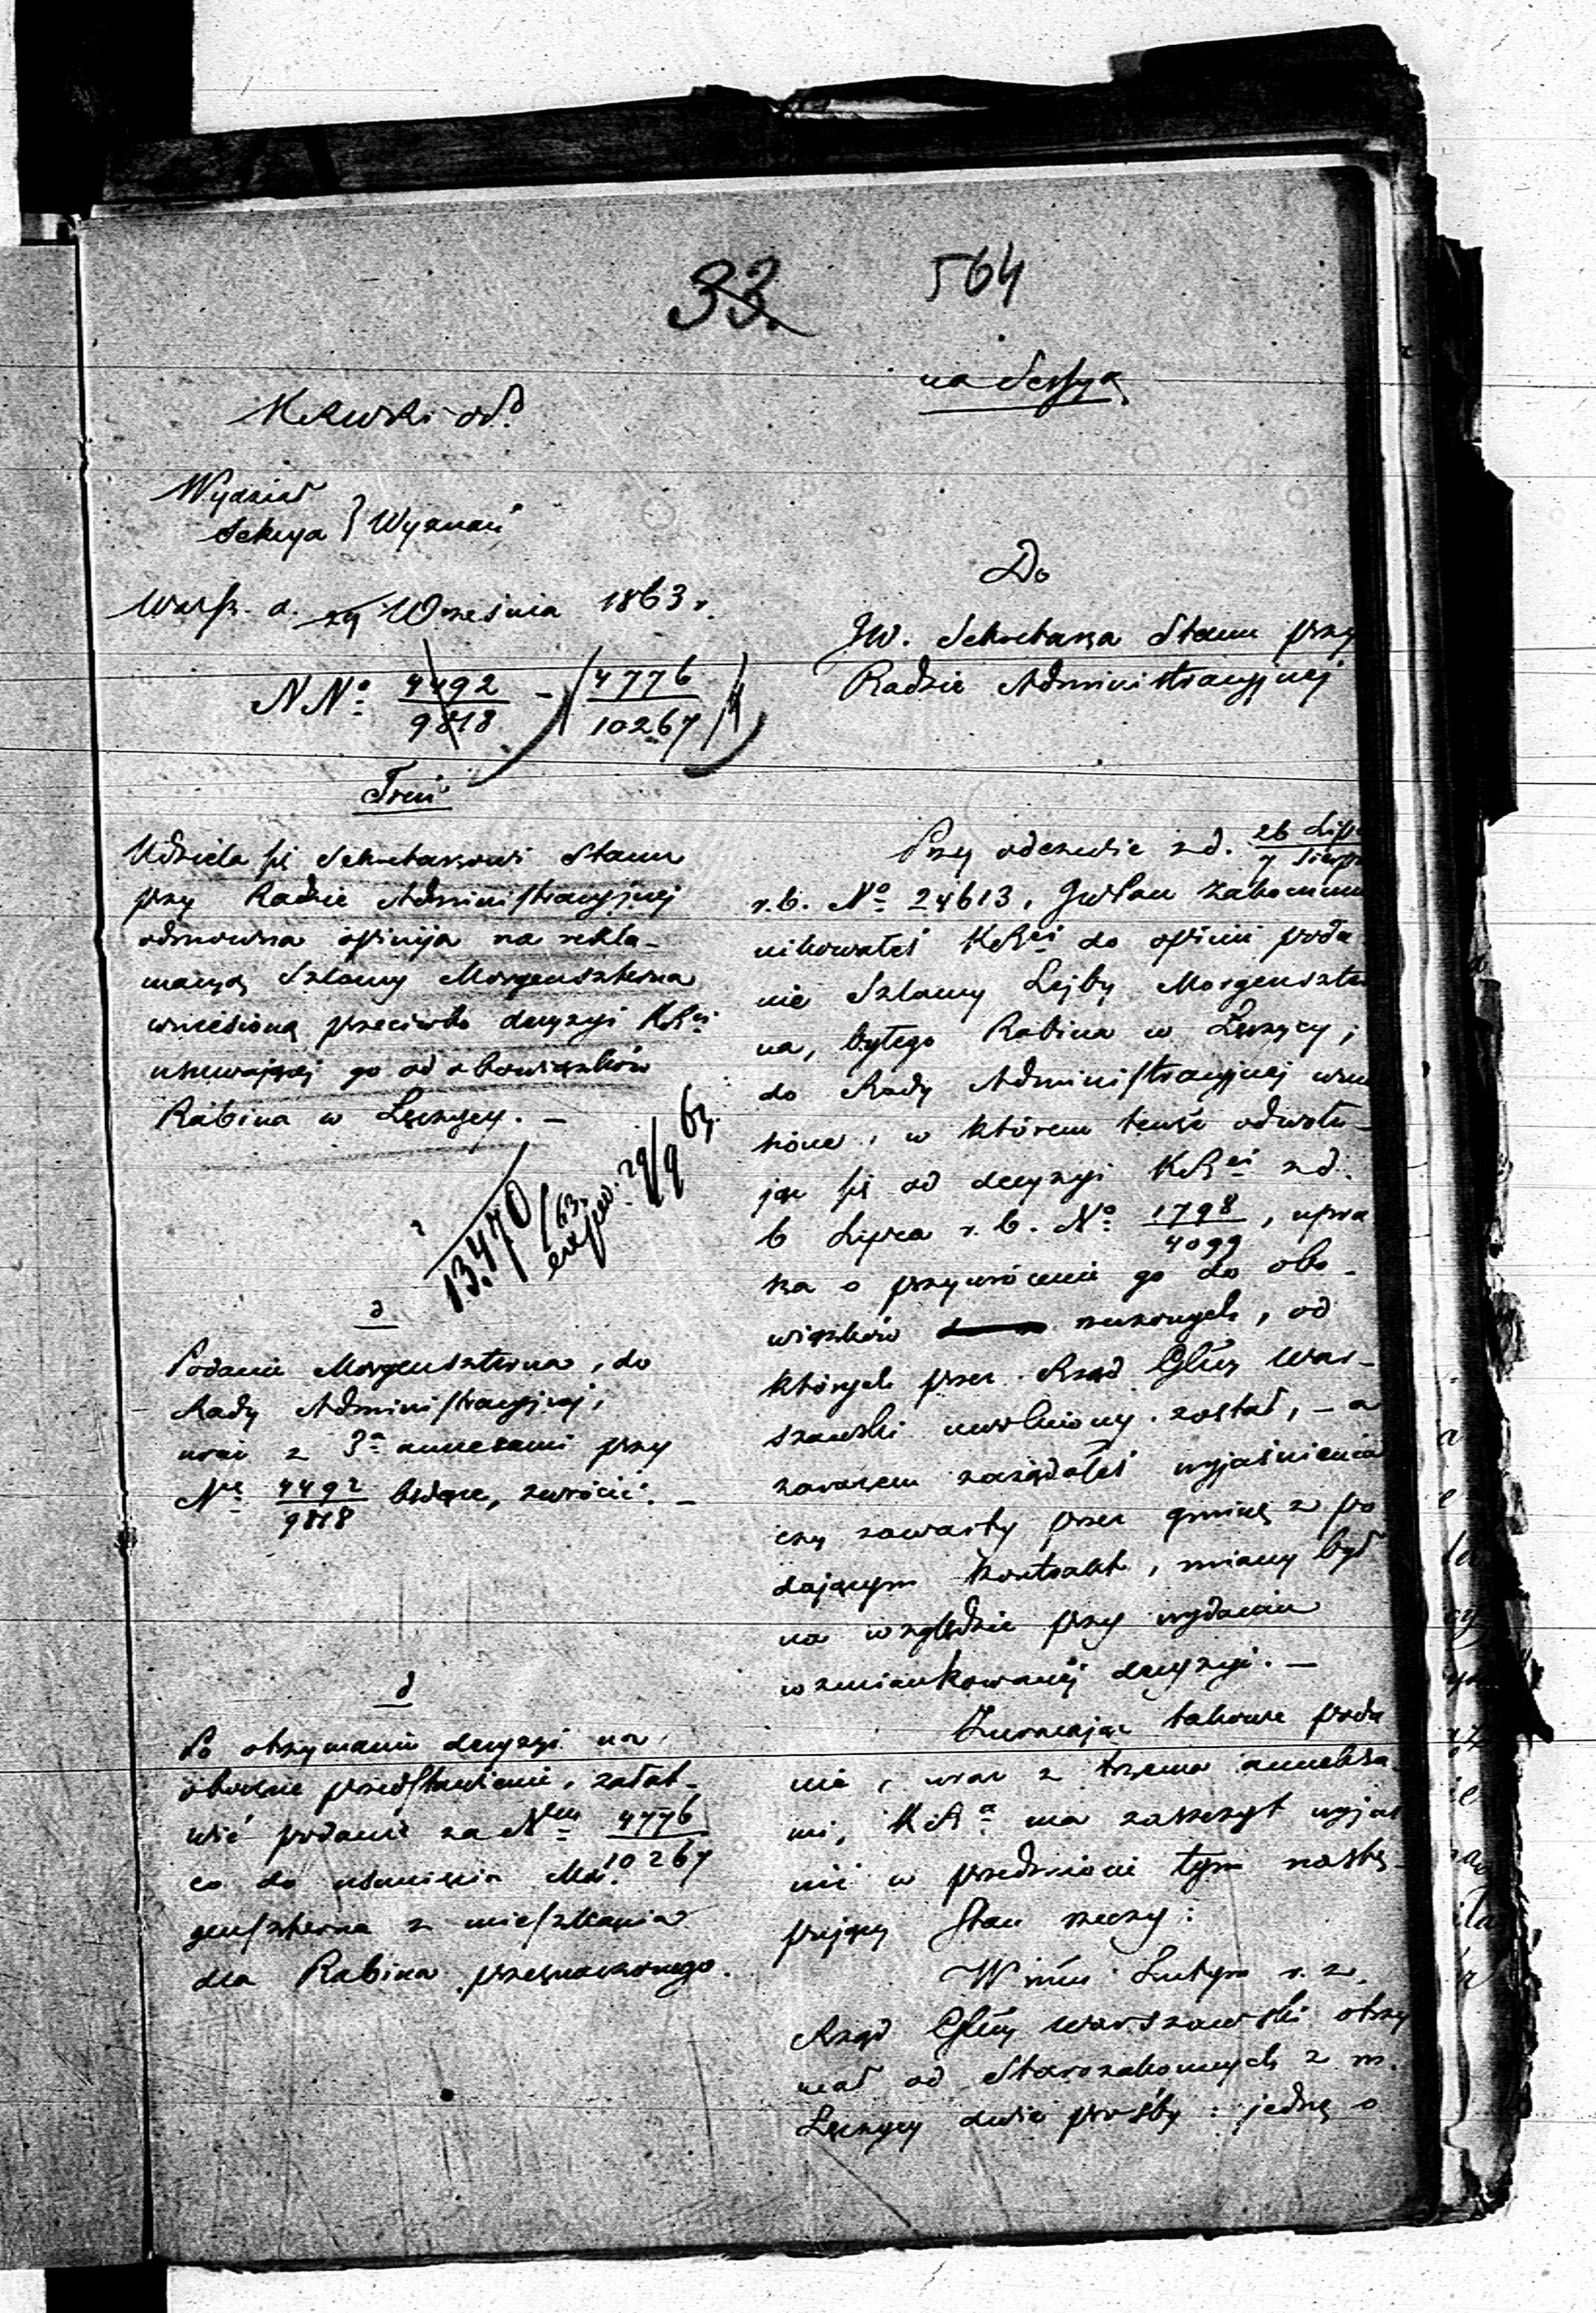 33.
564
na Sessyą
Wydział
Sekcya } Wyznań
Warsz. d. 24 Września 1863 r.
NNo 4492/9818 – (4776/10267)
Treść
Udziela się Sekretarzowi Stanu
przy Radzie Administracyjnej
odmowna opinija na rekla-
macyą Szlamy Morgenszterna
wniesioną przeciwko decyzyi KRei
usuwającej go od obowiązków
Rabina w Łęczycy. –
13.470/63.
exped. 29/9 63
Podanie Morgenszterna, do
Rady Administracyjnej,
wraz z 3a annexami przy
Nrze 4492/9818 będące, zwrócić. –
Po otrzymaniu decyzyi na
obecne przedstawienie, załat-
wić podanie za Nrem 4776/10267
co do usunięcia Mor-
genszterna z mieszkania
dla Rabina przeznaczonego.
na Sessyą
Do
JW. Sekretarza Stanu przy
Radzie Administracyjnej
Przy odezwie z d. 26 Lip/7 Sierp
r. b. No 24613, JWPan zakommu
nikowałeś KRei do opinii poda
nie Szlamy Lejby Morgenszter
na, byłego Rabina w Łęczycy,
do Rady Administracyjnej wnie
sione, w którem tenże odwołu-
jąc się od decyzyi KRei z d.
6 Lipca r. b. No 1798/4099, upra
sza o przywrócenie go do obo-
wiązków rzeczonych, od
których przez Rząd Glny War-
szawski uwolniony został, – a
zarazem zażądałeś wyjaśnienia
czy zawarty przez gminę z po
dającym kontrakt, miany był
na względzie przy wydaniu
wzmiankowanej decyzyi. –
Zwracając takowe poda
nie, wraz z trzema annexa-
mi, KRa ma zaszczyt wyjaś
nić w przedmiocie tym nastę-
pujący stan rzeczy:
W mcu Lutym r. z.
Rząd Glny Warszawski otrzy
mał od Starozakonnych z m.
Łęczycy dwie prośby: jedną o